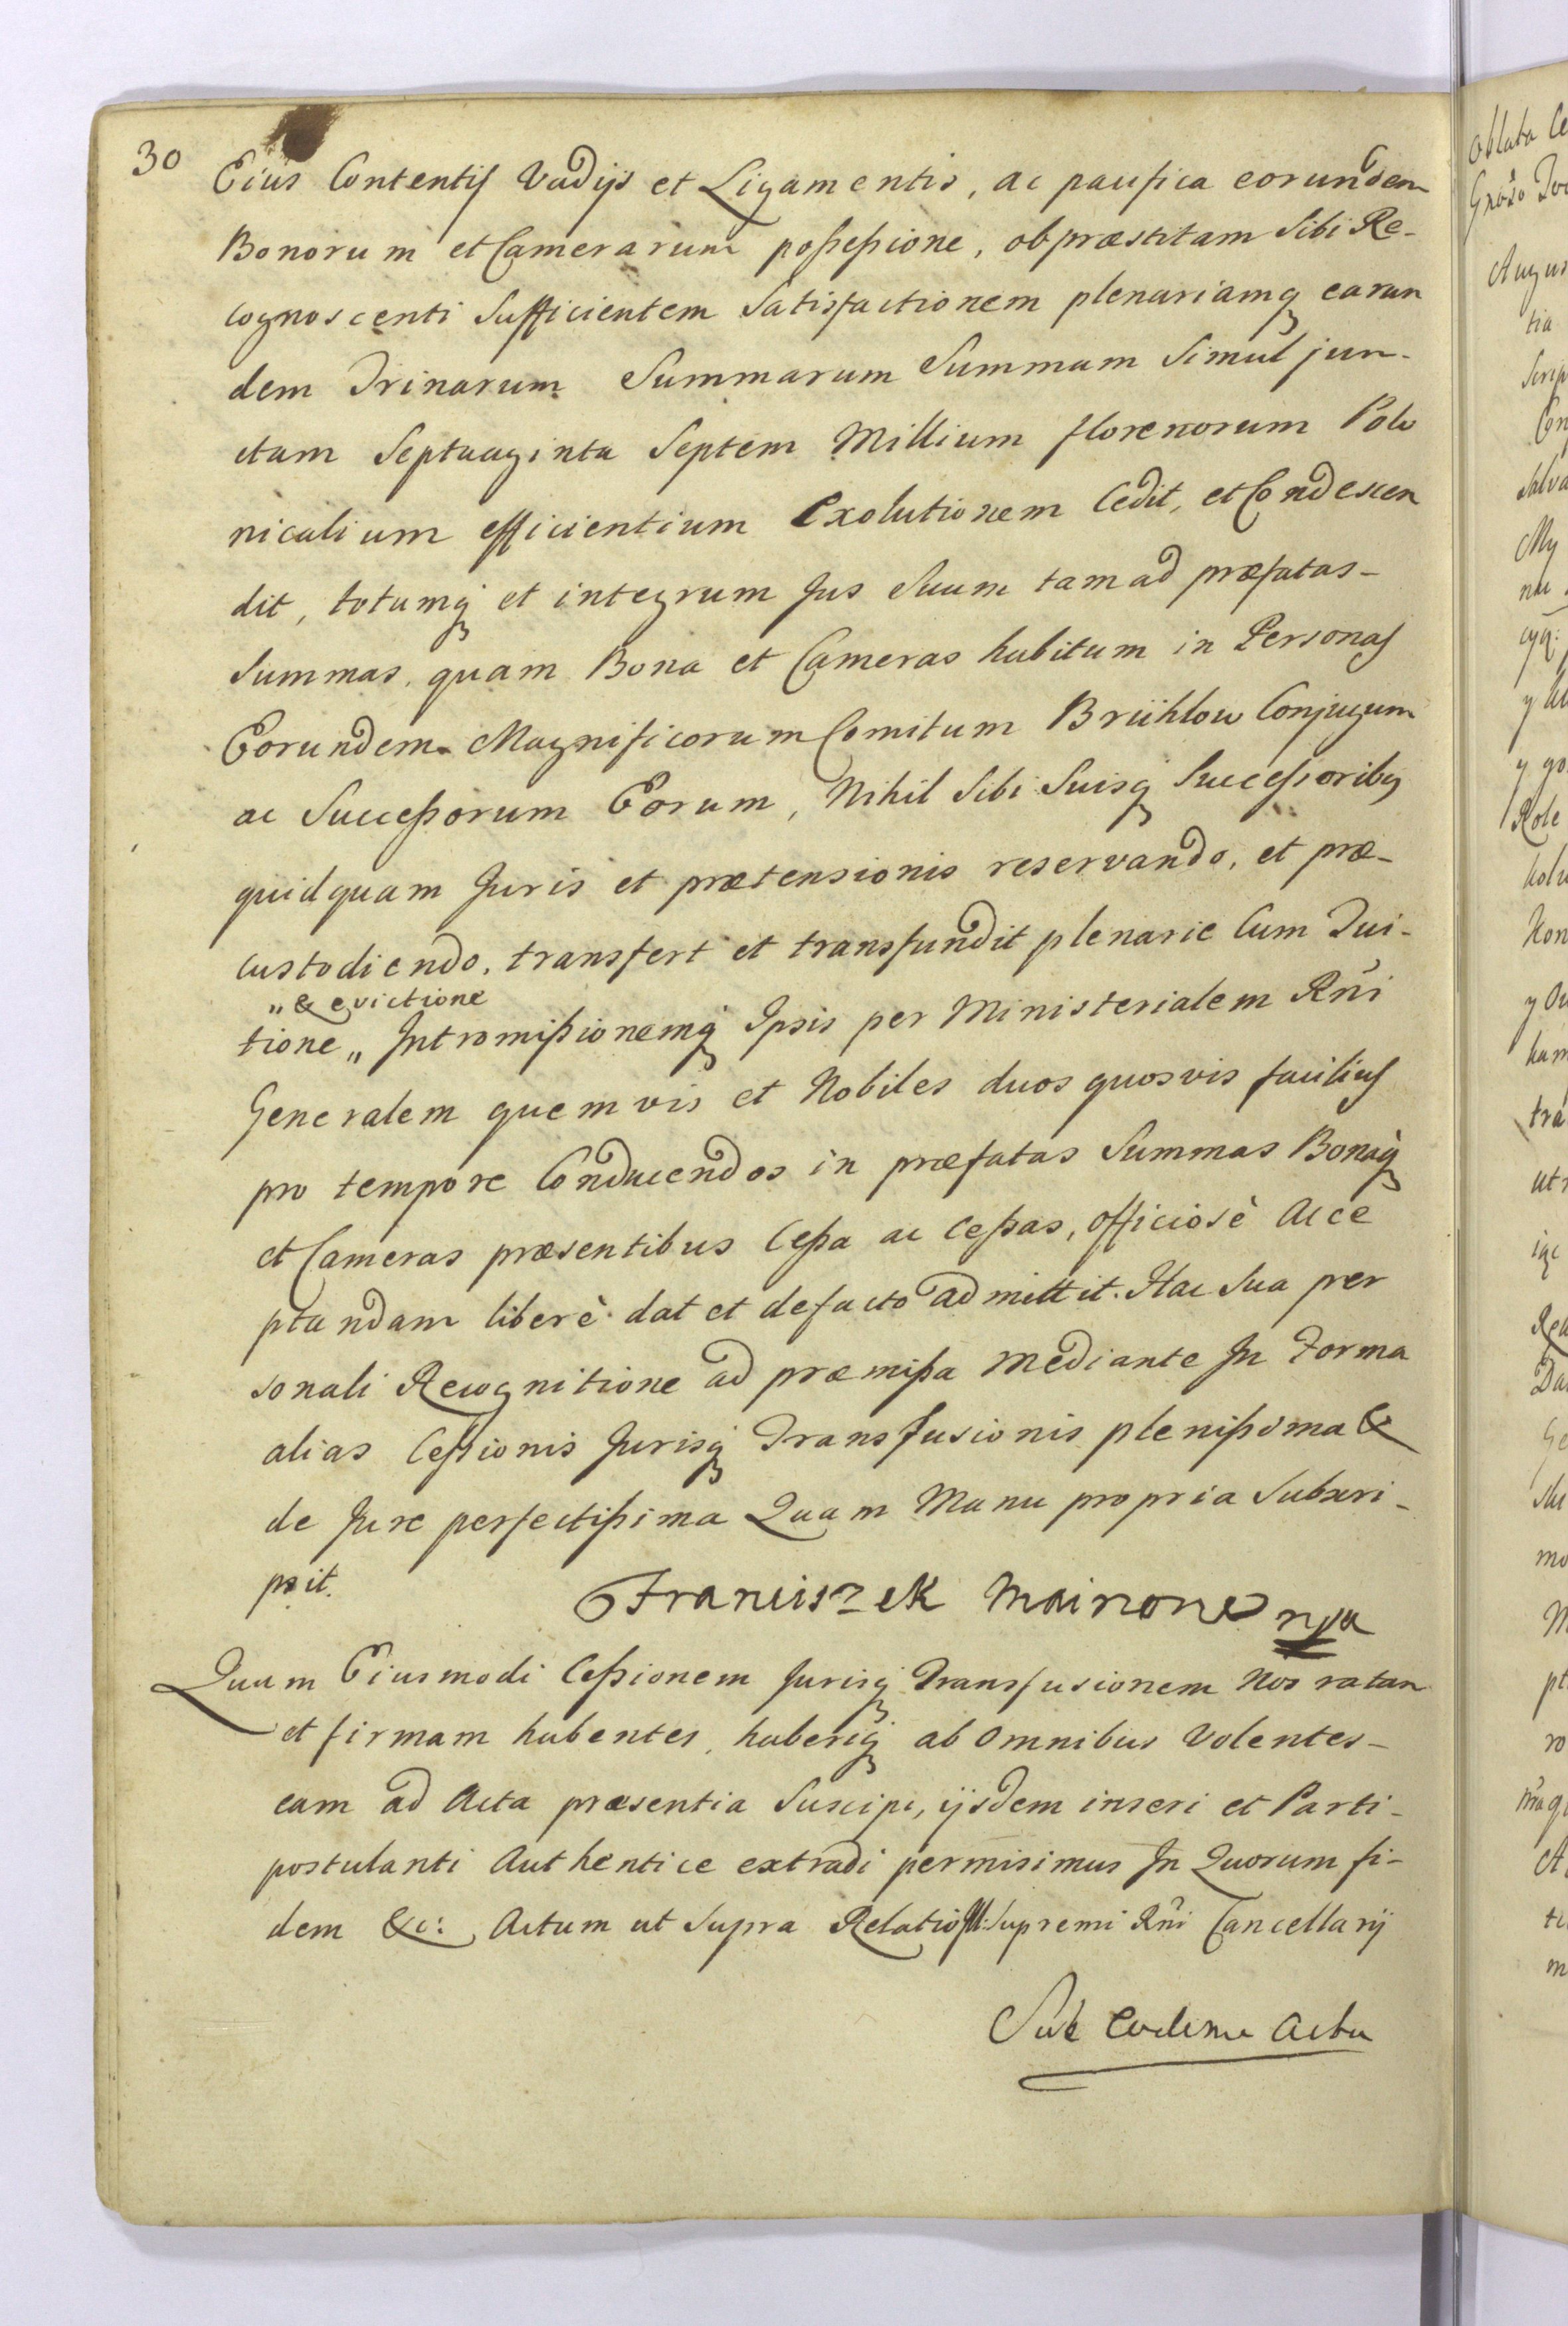 30
Eius Contentis Vadijs et Ligamentis, ac pacifica eorundem
Bonorum et Camerarum poßeßione, ob præstitam Sibi Re-
cognoscenti Sufficientem Satisfactionem plenariamq earun
dem Trinarum Summarum Summam Simul jun-
ctam Septuaginta Septem Millium florenorum Polo
nicalium efficientium Exolutionem Cedit, et Condescen
dit, totumq et integrum Jus Suum tam ad præfatas-
Summas, quam Bona et Cameras habitum in Personas
Eorundem Magnificorum Comitum Brühlow Conjugum
ac Succeßorum Eorum, Nihil Sibi Suisq Succeßoribg
quidquam Juris et prætensionis reservando, et præ-
custodiendo, transfert et transfundit plenarie Cum Qui-
„ & evictione
tione „ Intromißionemq Ipsis per Ministerialem Rñi
Generalem quemvis et Nobiles duos quosvis facilius
pro tempore Conducendos in præfatas Summas Bonaq
et Cameras præsentibus Ceßa ac Ceßas, officiosè acce
ptandam liberè dat et defacto admittit. Hac Sua per
sonali Recognitione ad præmißa mediante In Forma
alias Ceßionis Jurisq Transfusionis plenißima &
de Jure perfectißima Quam Manu propria Subscri-
psit.
Franciszek Mainone mpa
Quam Eiusmodi Ceßionem Jurisq Transfusionem Nos ratam
et firmam habentes, haberiq ab omnibus Volentes-
eam ad Acta præsentia Suscipi, ijsdem inseri et Parti-
postulanti Authentice extradi permisimus In Quorum fi-
dem &c: Actum ut Supra Relatio Ill: Supremi Rñi Cancellarij
Sub Eodem Actu